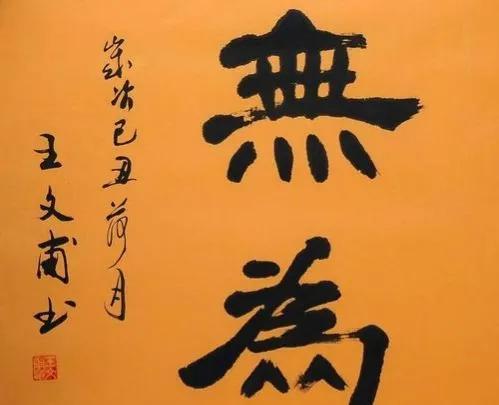 無為
歲次己丑荷月
王文甫书